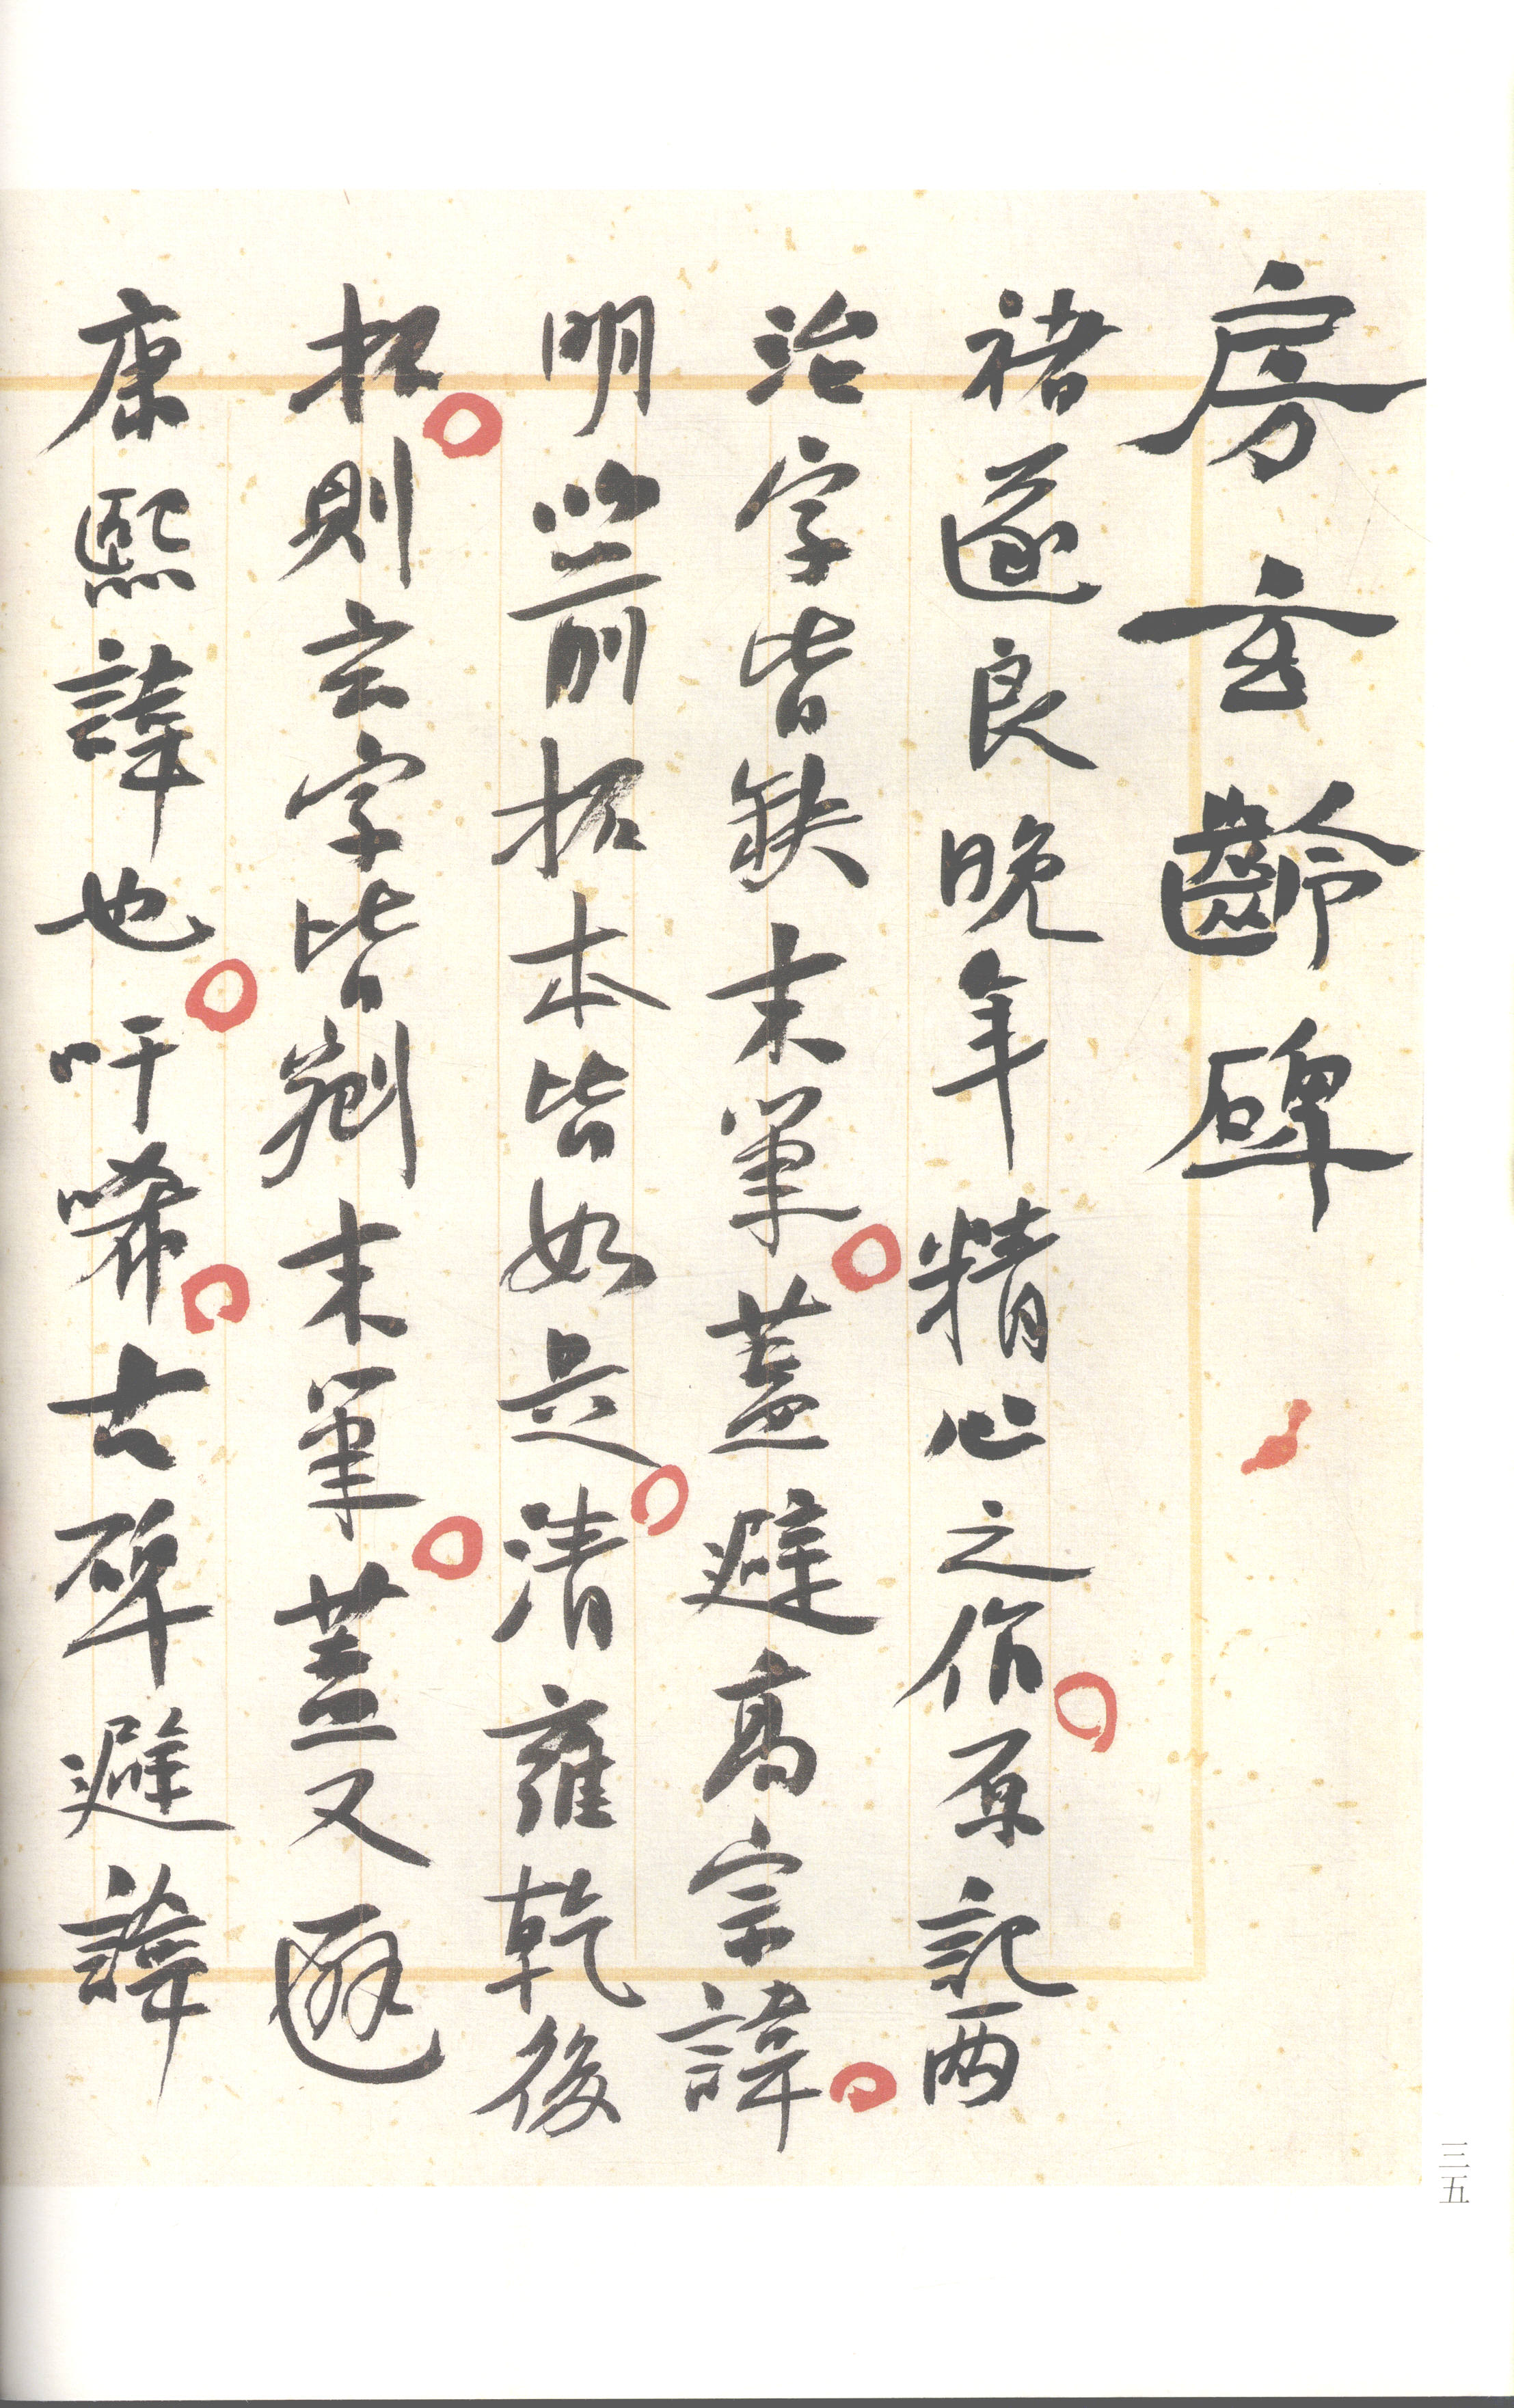 房玄齡碑
褚遂良晚年精心之作。原記两
治字皆缺末筆。蓋避高宗諱。
明以前拓本皆如是。清雍乾後
拓。則玄字皆剜末筆。蓋又避
康熙諱也。吁唏。古碑避諱
三五